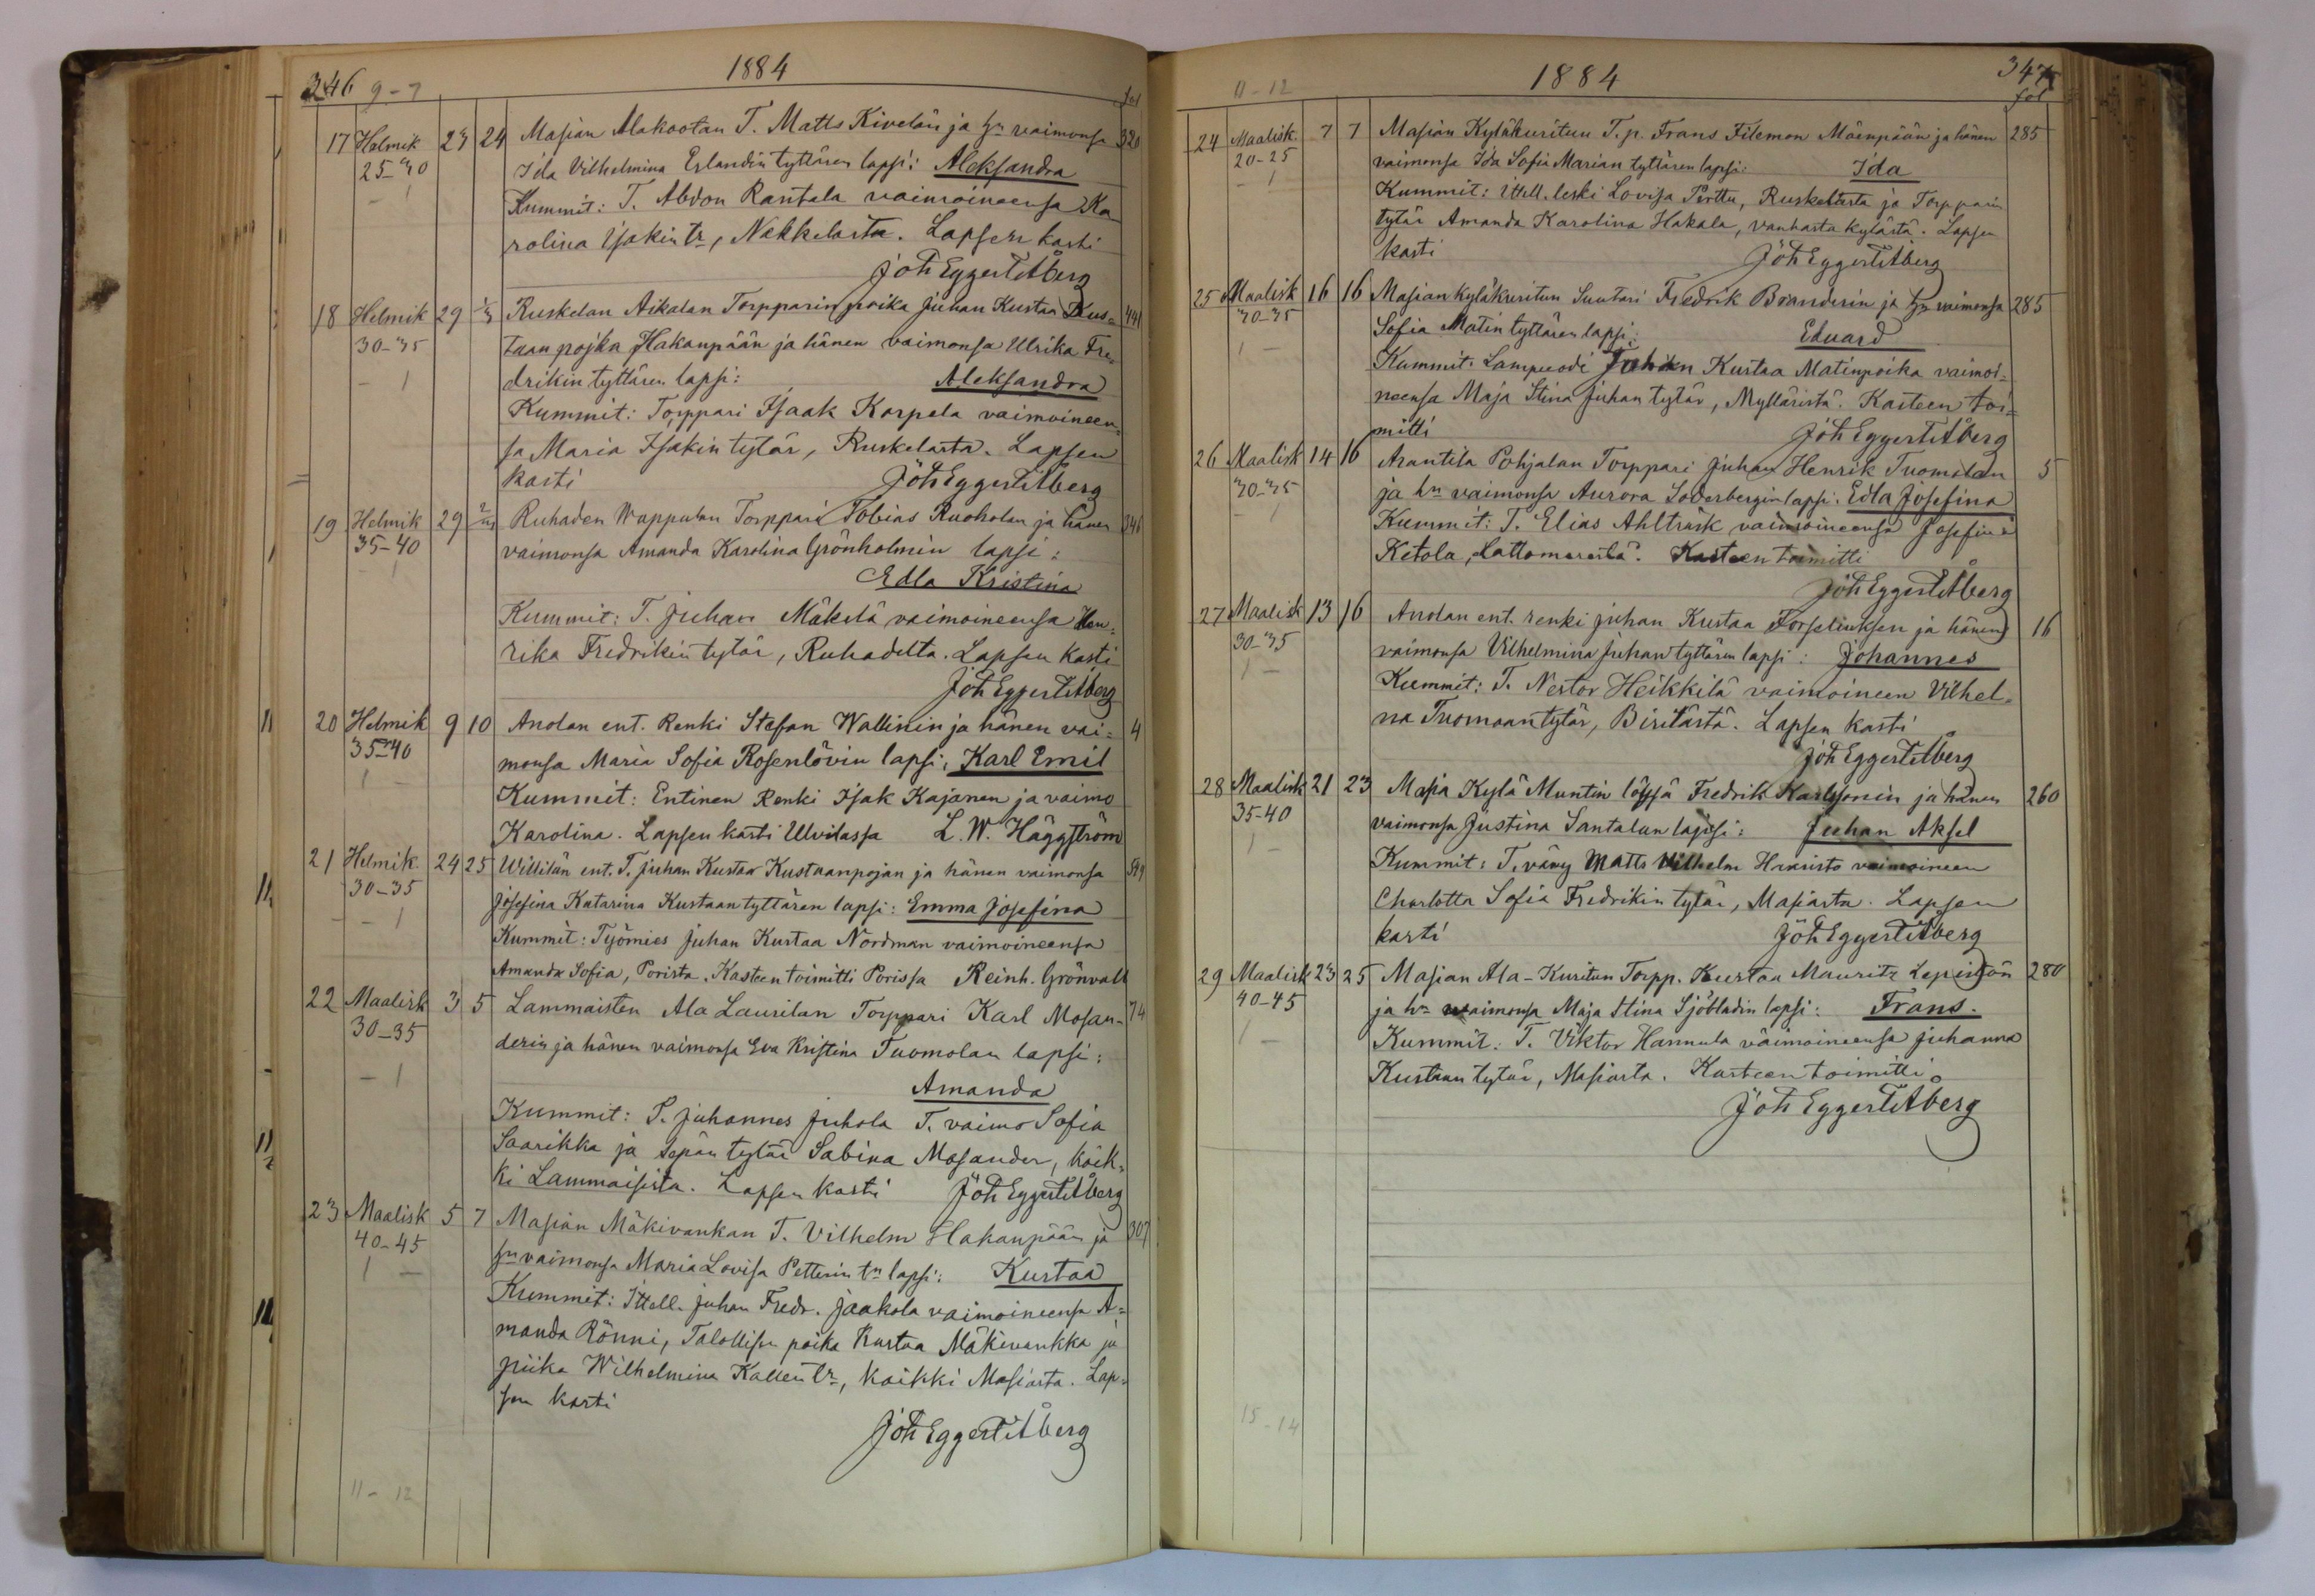 346 9-7 1884 fol
17 Helmik 23 24 Masian Alakootan T. Matts Kivelän ja hn vaimonsa 320
25-30 Ida Vilhelmina Erlandin tyttären lapsi: Aleksandra
- 1 Kummit: T. Abdon Rantala vaimoineensa Ka
rolina Isakin tr, Nakkilasta. Lapsen kasti
Joh Eggert Åberg
18 Helmik 29 1/3 Ruskelan Aikalan Torpparin poika Juhan Kustaa Kus= 441
30-35 taan pojka Hakanpään ja hänen vaimonsa Ulrika Fre=
- 1 drikin tyttären lapsi: Aleksandra
Kummit: Torppari Isaak Karpela vaimoineen=
sa Maria Isakin tytär, Ruskelasta. Lapsen
kasti Joh Eggert Åberg
19 Helmik 29 2/3 Ruhaden Wappulan Torppari Tobias Ruoholan ja hänen 346
35-40 vaimonsa Amanda Karolina Grönholmin lapsi:
1 Edla Kristina
Kummit: T. Juhan Mäkelä vaimoineensa Hen=
rika Fredrikin tytär, Ruhadelta. Lapsen kasti
Joh Eggert Åberg
20 Helmik 9 10 Anolan ent. Renki Stefan Wallinin ja hänen vai= 4
35-40 monsa Maria Sofia Rosenlövin lapsi: Karl Emil
1 - Kummit: Entinen Renki Isak Kajanen ja vaimo
Karolina. Lapsen kasti Ulvilassa L. W. Häggström
21 Helmik. 24 25 Willilän ent. T. Juhan Kustaa Kustaanpojan ja hänen vaimonsa
30-35 Josefina Katarina Kustaan tyttären lapsi: Emma Josefina
- 1 Kummit: Työmies Juhan Kustaa Nordman vaimoineensa
Amanda Sofia, Porista. Kasteen toimitti Porissa Reinh. Grönvall
22 Maalisk 3 5 Lammaisten Ala Laurilan Torppari Karl Mosan= 74
30-35 derin ja hänen vaimonsa Eva Kristina Tuomolan lapsi:
- 1 Amanda
Kummit: T. Juhannes Juhola T. vaimo Sofia
Saarikka ja sepän tytär Sabina Mosander, kaik=
ki Lammaisista. Lapsen kasti Joh Eggert Åberg
23 Maalisk 5 7 Masian Mäkivankan T. Vilhelm Hakanpään ja 307
40-45 hn vaimonsa Maria Lovisa Petterin tn lapsi: Kustaa
1 - Kummit: Ittell. Juhan Fredr. Jaakola vaimoineensa A=
manda Rönni, Talollisen poika Kustaa Mäkivankka ja
piika Wilhelmina Kallen tr, kaikki Masiasta. Lap=
sen kasti
Joh Eggert Åberg
11-12
11-12 1884 347
fol
24 Maalisk. 7 7 Masian Kyläkuritun T. p. Frans Filemon Mäenpään ja hänen 285
20-25 vaimonsa Ida Sofia Marian tyttären lapsi: Ida
- 1 Kummit: Ittell. leski Lovisa Perttu, Ruskelasta ja Torpparin
tytär Amanda Karolina Hakala, vanhasta kylästä. Lapsen
kasti Joh Eggert Åberg
25 Maalisk 16 16 Masian kyläkuritun Suutari Fredrik Branderin ja hn vaimonsa 285
30-35 Sofia Matin tyttären lapsi: Eduard
1 - Kummit: Lampuodi Juhan Kustaa Matinpoika vaimoi=
neensa Maja Stina Juhan tytär, Mylläristä. Kasteen toi=
mitti Joh Eggert Åberg
26 Maalisk 14 16 Arantila Pohjalan Torppari Juhan Henrik Tuomolan 5
30-35 ja hn vaimonsa Aurora Söderbergin lapsi: Edla Josefina
- 1 Kummit: T. Elias Ahlträsk vaimoineensa Josefina
Ketola, Lattomerestä. Kasteen toimitti
Joh Eggert Åberg
27 Maalisk 13 16 Anolan ent. renki Juhan Kustaa Forseliuksen ja hänen 16
30-35 vaimonsa Vilhelmina Juhan tyttären lapsi: Johannes
1 - Kummit: T. Nestor Heikkilä vaimoineen Vilhel=
na Tuomaan tytär, Birilästä. Lapsen kasti
Joh Eggert Åberg
28 Maalisk 21 23 Masia Kylä Muntin Fredrik Karlssonin ja hänen 260
35-40 vaimonsa Justina Santalan lapsi: Juhan Aksel
1 - Kummit: T. vävy Matts Vilhelm Haaristo vaimoineen
Charlotta Sofia Fredrikin tytär, Masiasta. Lapsen
kasti Joh Eggert Åberg
29 Maalisk 23 25 Masian Ala-Kuritun Torpp. Kustaa Mauritz Lepistön 280
40-45 ja hn vaimonsa Maja Stina Sjöbladin lapsi: Frans.
1 - Kummit: T. Viktor Hannula vaimoineensa Juhanna
Kustaan tytär, Masiasta. Kasteen toimitti
Joh Eggert Åberg
15-14